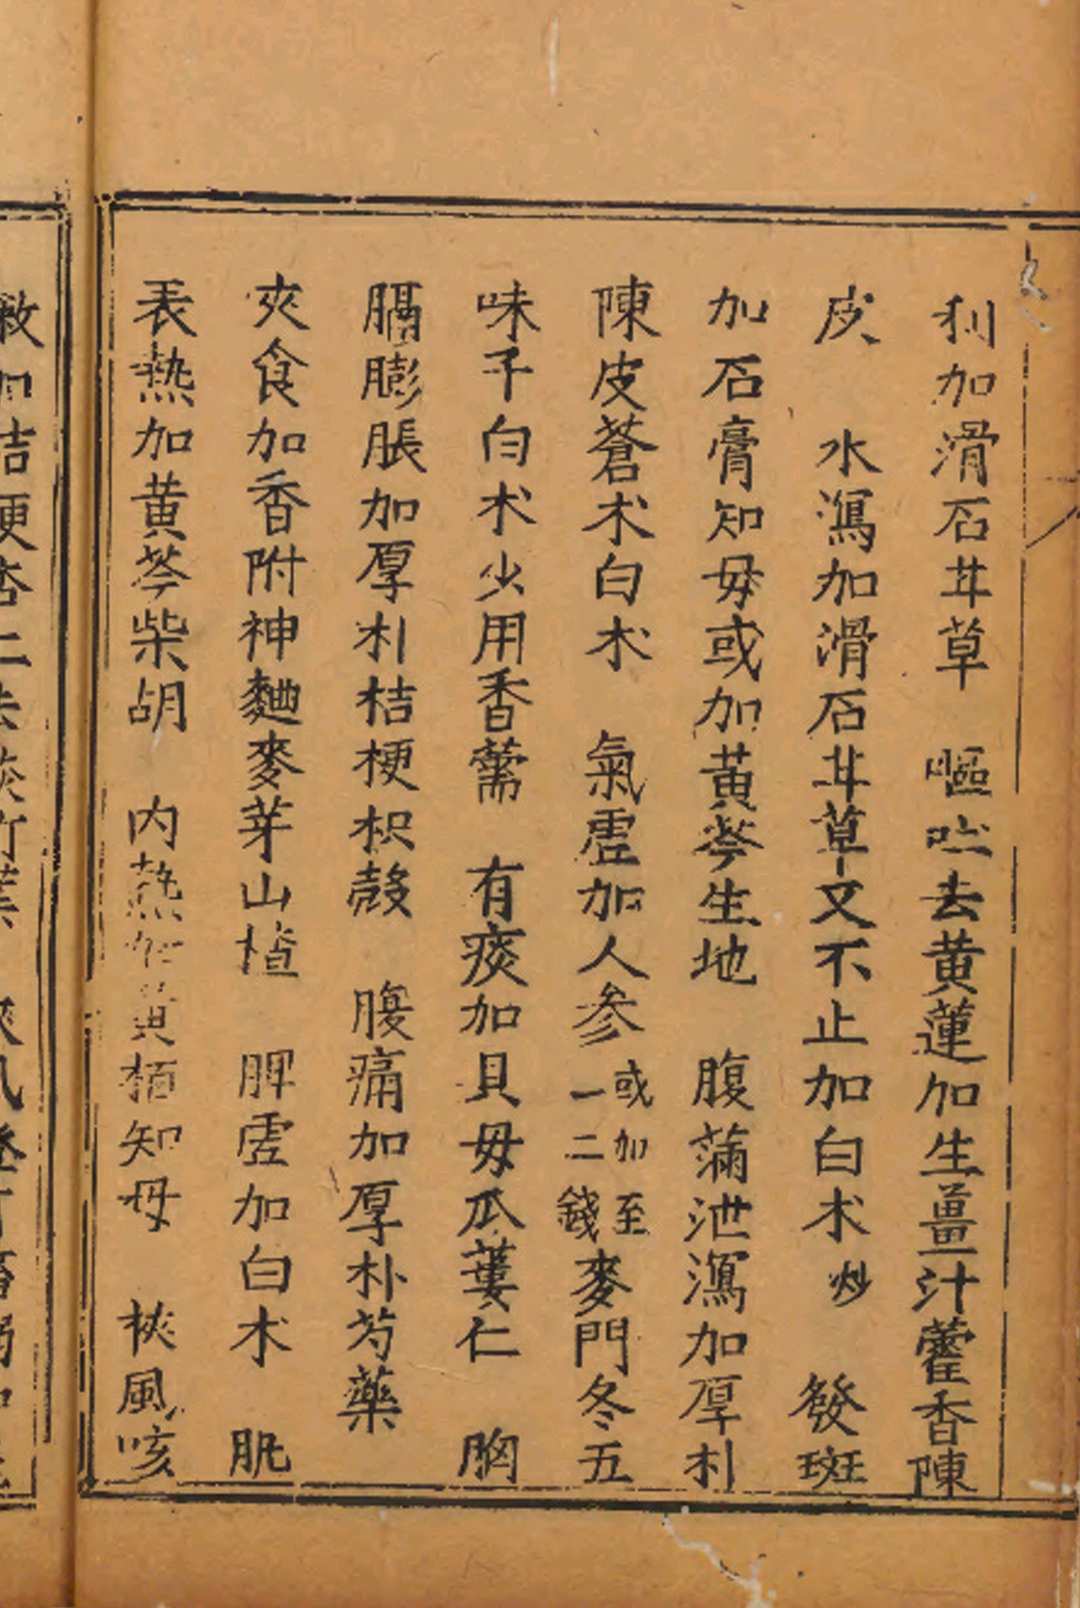 利加滑石甘草　嘔吐去黄蓮加生薑汁藿香陳
皮　水瀉加滑石甘草又不止加白术炒　發斑
加石膏知毋或加黄芩生地　腹滿泄瀉加厚朴
陳皮蒼术白术　氣虛加人參或加至一二錢麥門冬五
味子白术少用香薷　有痰加貝毋瓜蔞仁　胸
膈膨脹加厚朴桔梗枳殼　腹痛加厚朴芍藥
夾食加香附神麯麥芽山楂　脾虛加白术　肌
表熱加黄芩柴胡　内熱加黄栢知母　挾風咳
嗽加桔梗杏仁去淡竹葉